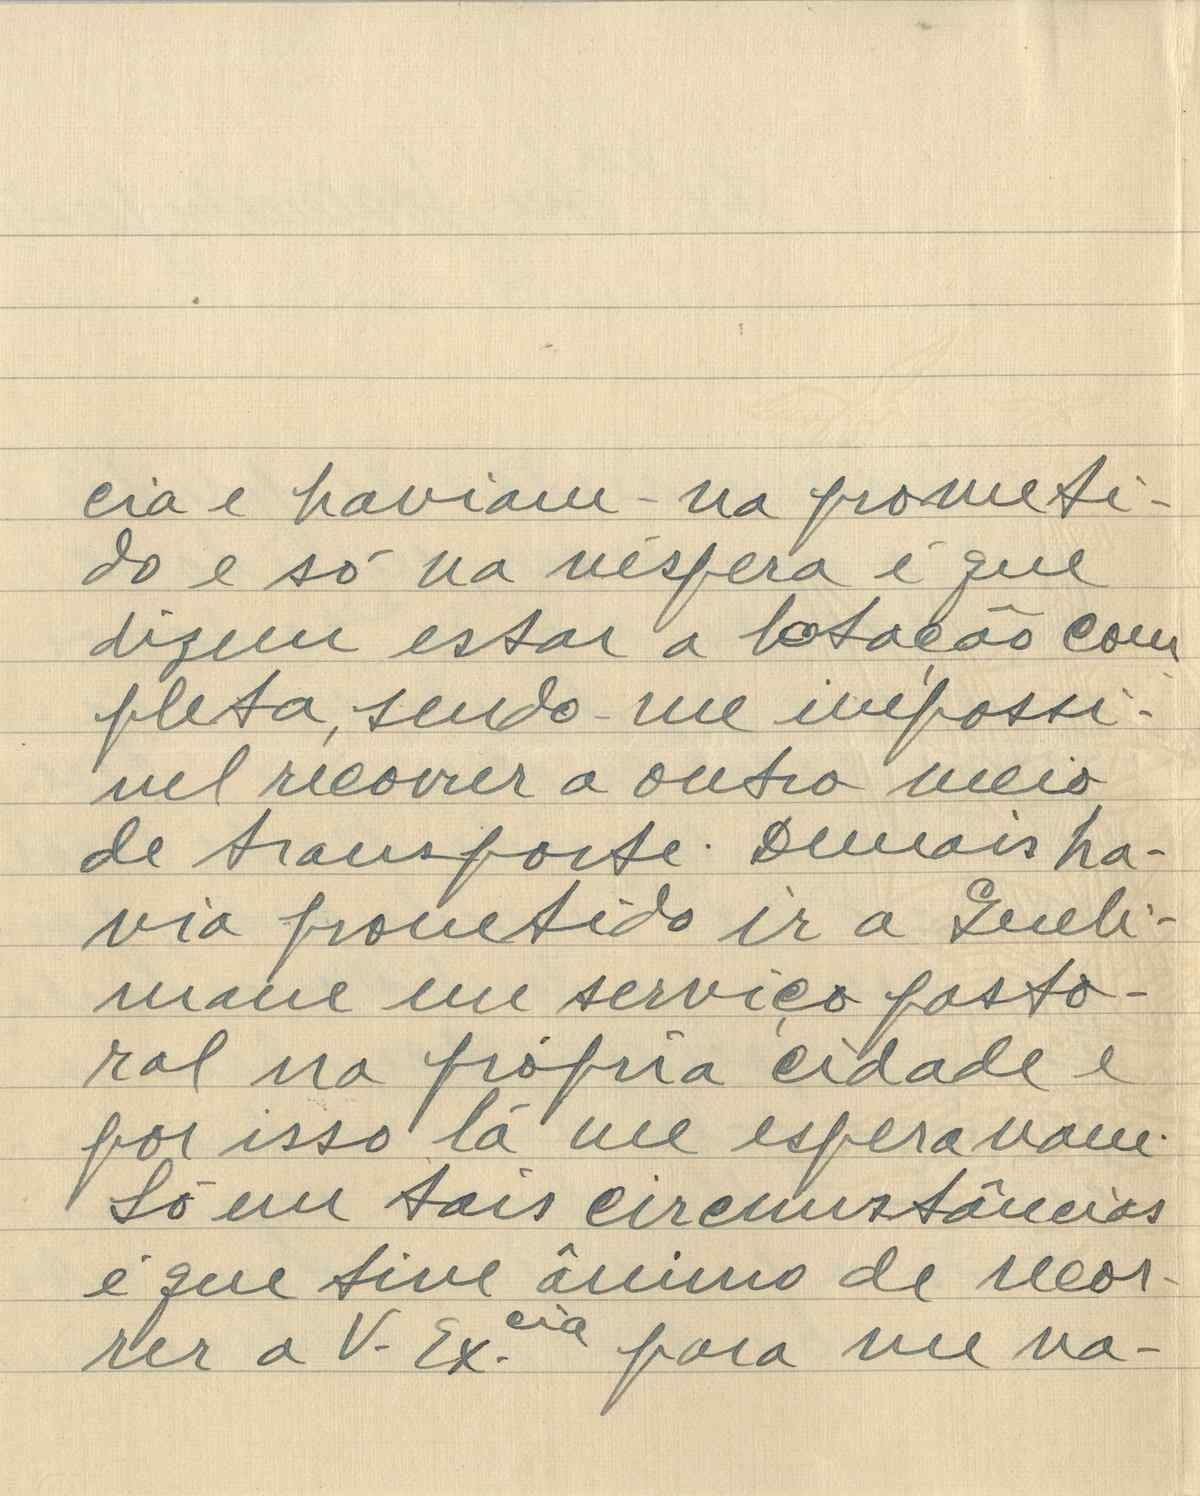 cia e haviam-na prometi-
do e só na véspera é que
dizem estar a lotação com
pleta, sendo-me impossi-
vel recorrer a outro meio
de transporte. Demais ha-
via prometido ir a Queli-
mane em serviço pasto-
ral na própria cidade e
por isso lá me esperavam.
Só em tais circunstâncias
é que tive ânimo de recor-
rer a V. Ex.cia para me va-